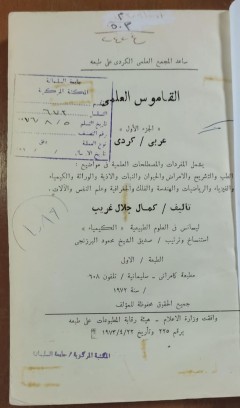 ساعد المجمع العلمي الكردي على طبعه
جامعة السليمانية
المكتبة المركزية
القاموس العلمي
« الجزء الأول »
عربي / كردي
يشمل المفردات والمصطلحات العلمية في مواضيع :
الطب والتشريح والامراض والحيوان والنبات والاحياء والوراثة والكيمياء
والفيزياء والرياضيات والهندسة والفلك والجغرافية وعلم النفس والآلات .
تأليف / كمال جلال غريب
ليسانس في العلوم الطبيعية « الكيمياء »
استنساخ وترتيب / صديق الشيخ محمود البرزنجي
الطبعة / الاولى
مطبعة كامراني - سليمانية / تلفون ٦٠٨
سنة / ١٩٧٢
جميع الحقوق محفوظة للمؤلف
وافقت وزارة الاعلام - هيئة رقابة المطبوعات على طبعه
برقم ٢٢٥ وتأريخ ١٩٧٢/٤/٢٣
المكتبة المركزية / جامعة السليمانية